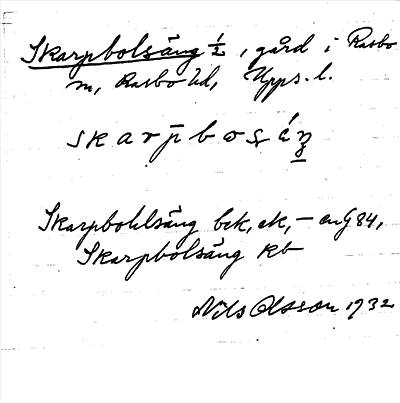 Skarpbolsäng ½, gård i Rasbo
sn, Rasbo hd, Upps. l.
skarpbosäŋ
Skarpbohlsäng bek, ek, — en G 84,
Skarpbolsäng kb
Nils Olsson 1932